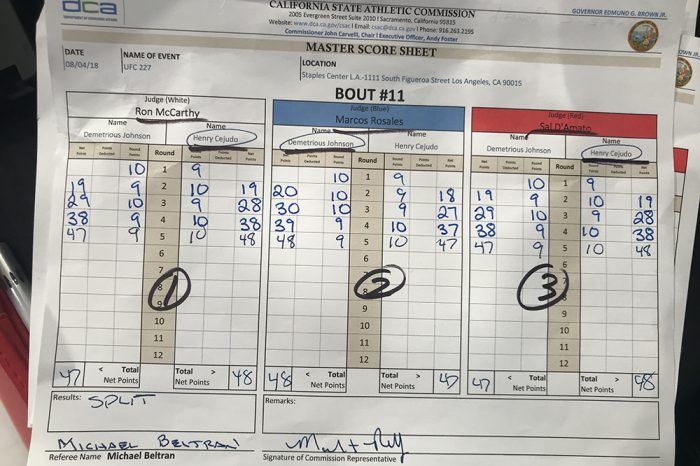 dca
DEPARTMENT OF CONSUMER AFFAIRS
CALIFORNIA STATE ATHLETIC COMMISSION
2005 Evergreen Street Suite 2010 | Sacramento, California 95815
Website: www.dca.ca.gov/csac | Email: csac@dca.ca.gov | Phone: 916.263.2195
Commissioner John Carvelli, Chair | Executive Officer, Andy Foster
GOVERNOR EDMUND G. BROWN JR.
MASTER SCORE SHEET
DATE NAME OF EVENT LOCATION
08/04/18 UFC 227 Staples Center L.A.-1111 South Figueroa Street Los Angeles, CA 90015
BOUT #11
Judge (White) Judge (Blue) Judge (Red)
Ron McCarthy Marcos Rosales Sal D'Amato
Name Name Name Name Name Name
Demetrious Johnson Henry Cejudo Demetrious Johnson Henry Cejudo Demetrious Johnson Henry Cejudo
Net Points Points Deducted Round Round Points Points Deducted Net Points Net Points Points Deducted Round Points Round Round Points Points Deducted Net Points Net Points Points Deducted Round Points Round Round Points Points Deducted Net Points
10 1 9 10 1 9 10 1 9
19 9 2 10 19 20 10 2 9 18 19 9 2 10 19
29 10 3 9 28 30 10 3 9 27 29 10 3 9 28
38 9 4 10 38 39 9 4 10 37 38 9 4 10 38
47 9 5 10 48 48 9 5 10 47 47 9 5 10 48
6 6 6
7
8 8 8
9 9 9
10 10 10
11 11 11
12 12 12
1 2 3
47 < Total Net Points Total > Net Points 48 48 < Total Net Points Total > Net Points 47 47 < Total Net Points Total > Net Points 48
Results: SPLIT Remarks:
MICHAEL BELTRAN
Referee Name Michael Beltran Signature of Commission Representative